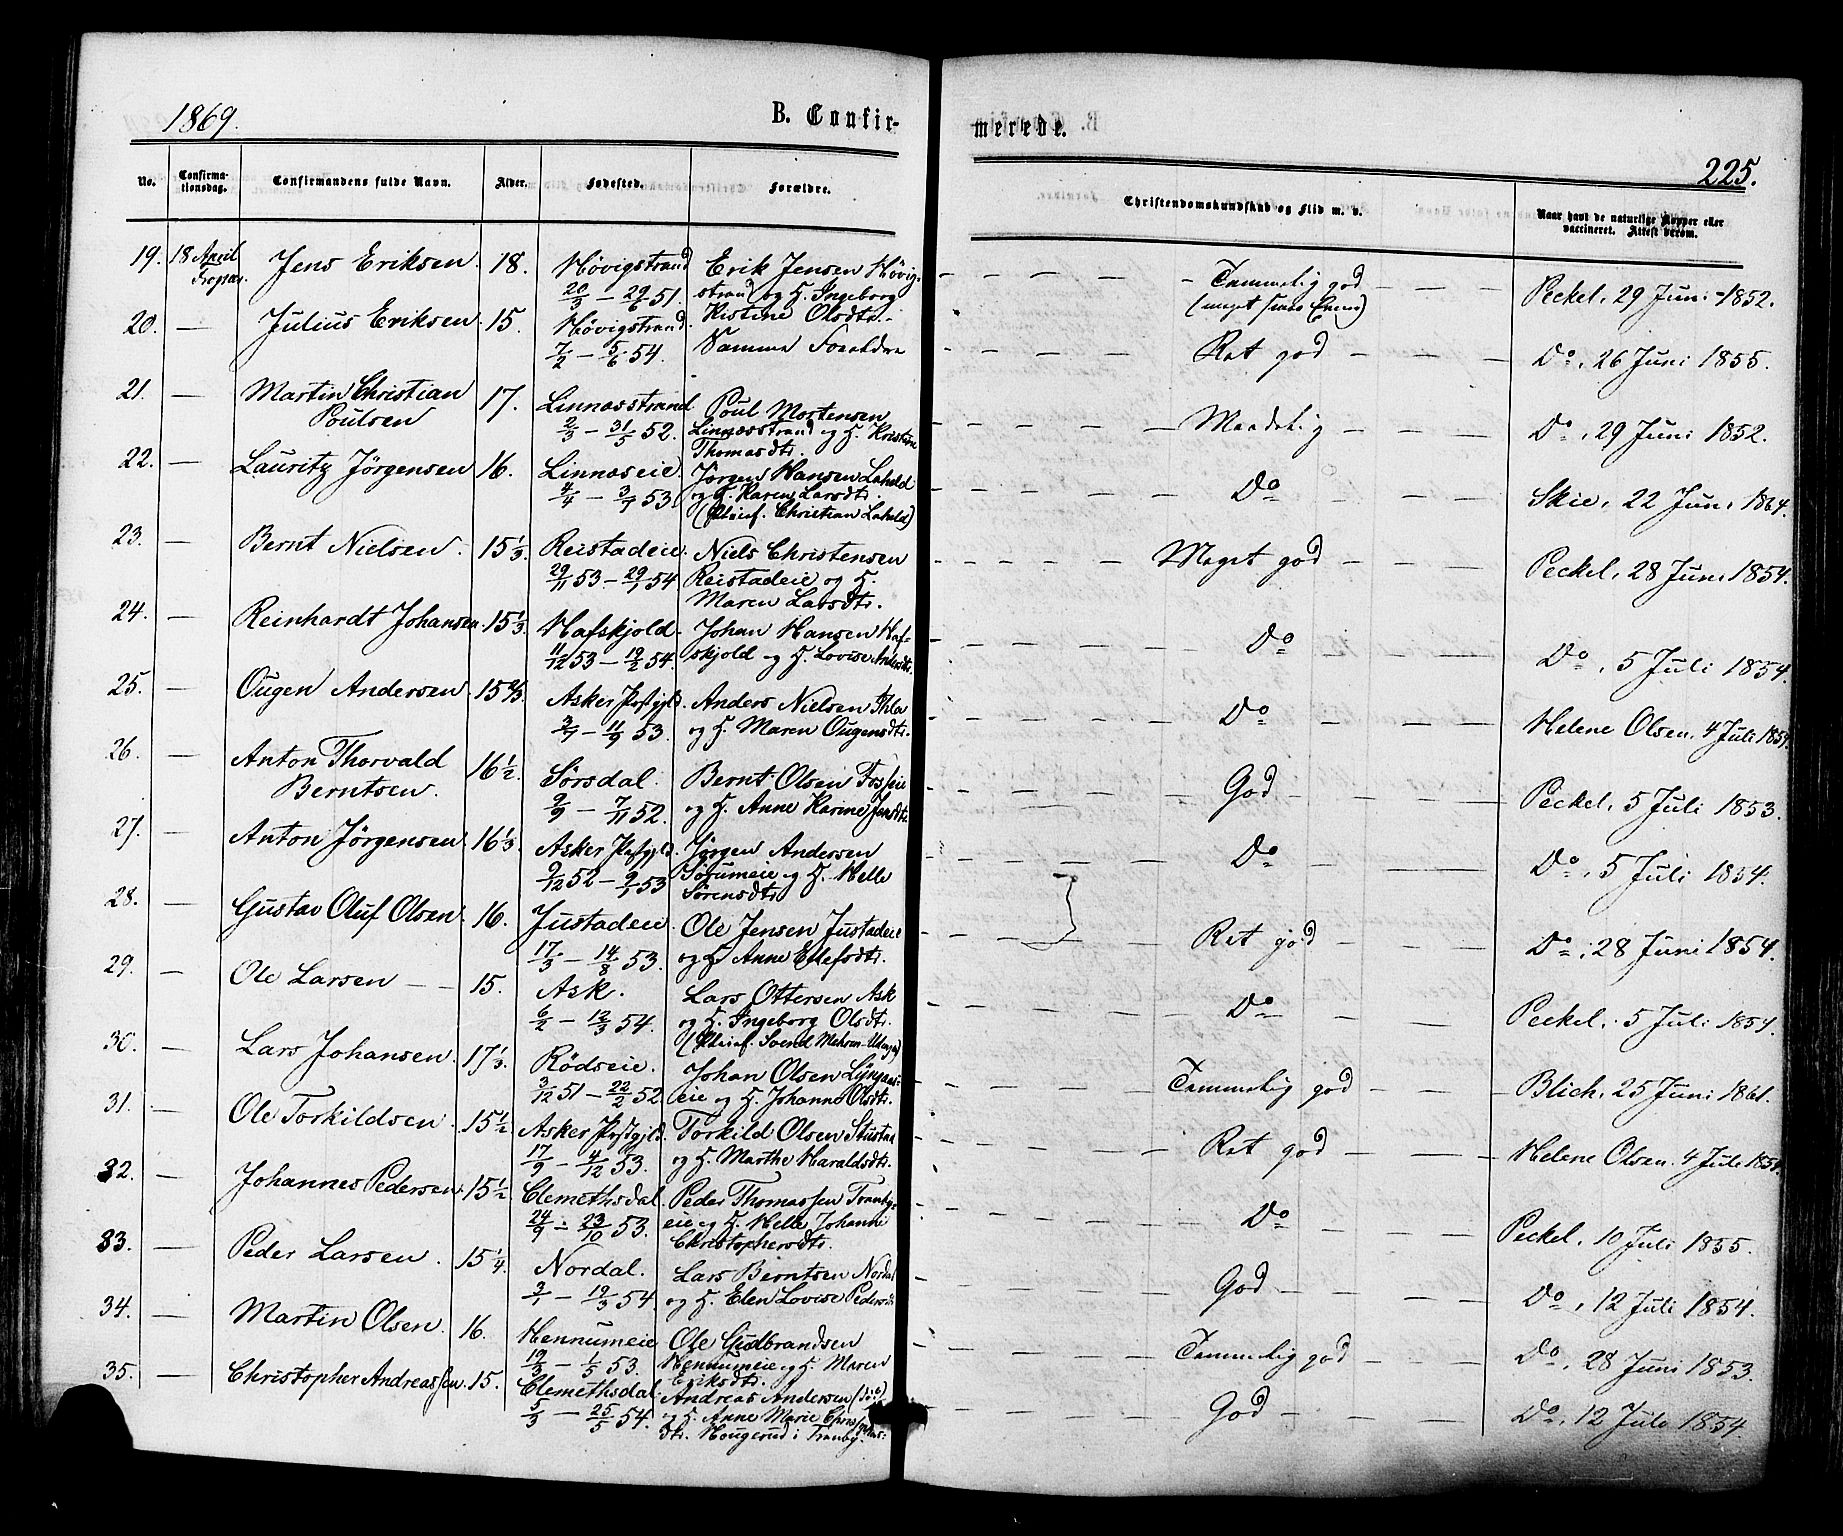 1869.
B. Confir-
merede.
225.
No.
Confirma-
tionsdag.
Confirmandens fulde Navn.
Alder.
Fødested.
Forældre.
Christendomskundskab og Flid m. v.
Naar havt de naturlige Kopper eller
vaccineret. Attest derom.
19. 18 April Jens Eriksen. 18. Hövigstrand Erik Jensen Hövig- Temmelig god Peckel, 29 Juni 1852.
20/3 – 29/6 51. strand og H. Ingeborg (meget svare Evner)
Kistine Olsdtr.
20. — Julius Eriksen. 15. Hövigstrand. Samme Forældre Ret god Do, 26 Juni 1855.
7/2 – 5/6 54.
21. — Martin Christian 17. Linnæsstrand Poul Mortensen Maadelig Do, 29 Juni 1852.
Poulsen 2/3 – 31/5 52. Linnæsstrand og H. Kristine
Thomasdtr.
22. — Lauritz Jörgensen 16. Linnæseie. Jörgen Hansen Laheld Do Skie, 22 Juni 1864.
4/4 – 3/7 53. og H. Karen Larsdtr.
(Pleief. Christian Laheld)
23. — Bernt Nielsen. 15 1/3. Reistadeie. Niels Christensen Meget god Peckel, 28 Juni 1854.
29/11 53 – 29/1 54. Reistadeie og H.
Maren Larsdtr.
24. — Reinhardt Johansen. 15 1/3. Hafskjold. Johan Hansen Haf- Do Do, 5 Juli 1854.
11/12 53 – 19/2 54. skjold og H. Lovise Andersdtr.
25. — Ougen Andersen. 15 2/3. Asker Prstgjld. Anders Nielsen Do Helene Olsen, 4 Juli 1854.
3/7 – 11/9 53. og H. Maren Ougensdtr.
26. — Anton Thorvald 16 1/2. Sörsdal. Bernt Olsen Fosseie God Peckel, 5 Juli 1853.
Berntsen. 9/9 – 7/11 52. og H. Anne Karine Jensdtr.
27. — Anton Jörgensen. 16 1/3. Asker Prstgjld. Jörgen Andersen Do Do, 5 Juli 1854.
9/12 52 – 9/1 53 Sörumeie og H. Helle
Sörensdtr.
28. — Gustav Oluf Olsen. 16. Justadeie. Ole Jensen Justadeie Ret god Do, 28 Juni 1854.
17/3 – 14/8 53. og H. Anne Ellefsdtr.
29. — Ole Larsen 15. Ask. Lars Ottersen Ask Do Peckel, 5 Juli 1854.
6/2 – 12/3 54. og H. Ingeborg Olsdtr.
(Pleief. Svend
30. Lars Johansen. 17 1/3. Rödseie. Johan Olsen Lyngaas- Temmelig god Blich, 25 Juni 1861.
3/12 51 – 22/2 52. eie og H. Johanne Olsdtr.
31. — Ole Torkildsen. 15 1/2. Asker Prstgjld. Torkild Olsen Ret god Helene Olsen. 4 Juli 1854.
17/9 – 4/12 53. og H. Marthe Haraldsdtr.
32. — Johannes Pedersen. 15 1/2. Clemethsdal. Peder Thomassen Tranby- Do Peckel, 10 Juli 1855.
24/9 – 23/10 53. eie og H. Helle Johanne
Christophersdtr.
33. — Peder Larsen. 15 1/4. Nordal. Lars Berntsen Nordal God Do, 12 Juli 1854.
3/1 – 19/3 54 og H. Elen Lovise Pedersdtr.
34. — Martin Olsen. 16. Hennumeie Ole Gudbrandsen Temmelig god Do, 28 Juni 1853.
19/3 – 1/5 53. Hennumeie og H. Maren
Eriksdtr.
35. — Christopher Andreassen. 15. Clemethsdal. Andreas Andersen God Do, 12 Juli 1854.
5/3 – 25/5 54. og H. Anne Marie
dtr. Hougerud i Tranby.